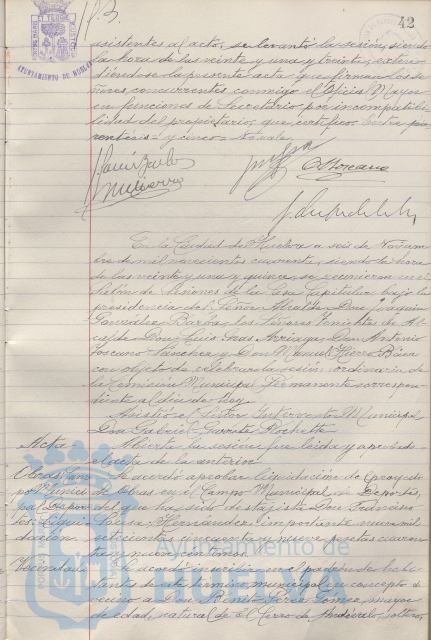 42
AYUNTAMIENTO DE HUELVA
asistentes al acto, se levantó la sesión, siendo
la hora de las veinte y una y treinta, exten-
diéndose la presente acta que firman los se-
ñores concurrentes conmigo el Oficial Mayor
en funciones de Secretario por incompatibi-
lidad del propietario, que certifico. Entre pa-
réntesis = y cinco = No vale
En la Ciudad de Huelva a seis de Noviem-
bre de mil novecientos cuarenta, siendo la hora
de las veinte y una y quince, se reunieron en el
Salón de Sesiones de la Casa Capitular bajo la
presidencia del Señor Alcalde Don Joaquín
González Barba los Señores Tenientes de Al-
calde Don Luis Arriaga, Don Antonio
Toscano Sánchez y Don Manuel Hierro
con objeto de celebrar la sesión ordinaria de
la Comisión Municipal Permanente correspon-
diente al día de hoy.
Asistió el Señor Interventor Municipal
Don Gabriel Garrote
Acta
Abierta la sesión fue leída y aprobada
el acta de la anterior.
Se acordó aprobar liquidación de
obras en el Campo Municipal de Deportes,
de que ha sido destajista Don Francisco
Hernández, importante nueve mil
setecientos nueve pesetas cuaren-
ta y nueve céntimos.
Vecindad
Se acordó inscribir en el padrón de habi-
tantes de este término municipal en concepto de
vecino a Don Benito Pérez Gómez, mayor
de edad, natural de El Cerro de Andévalo, soltero,
Ayuntamiento de
HUELVA